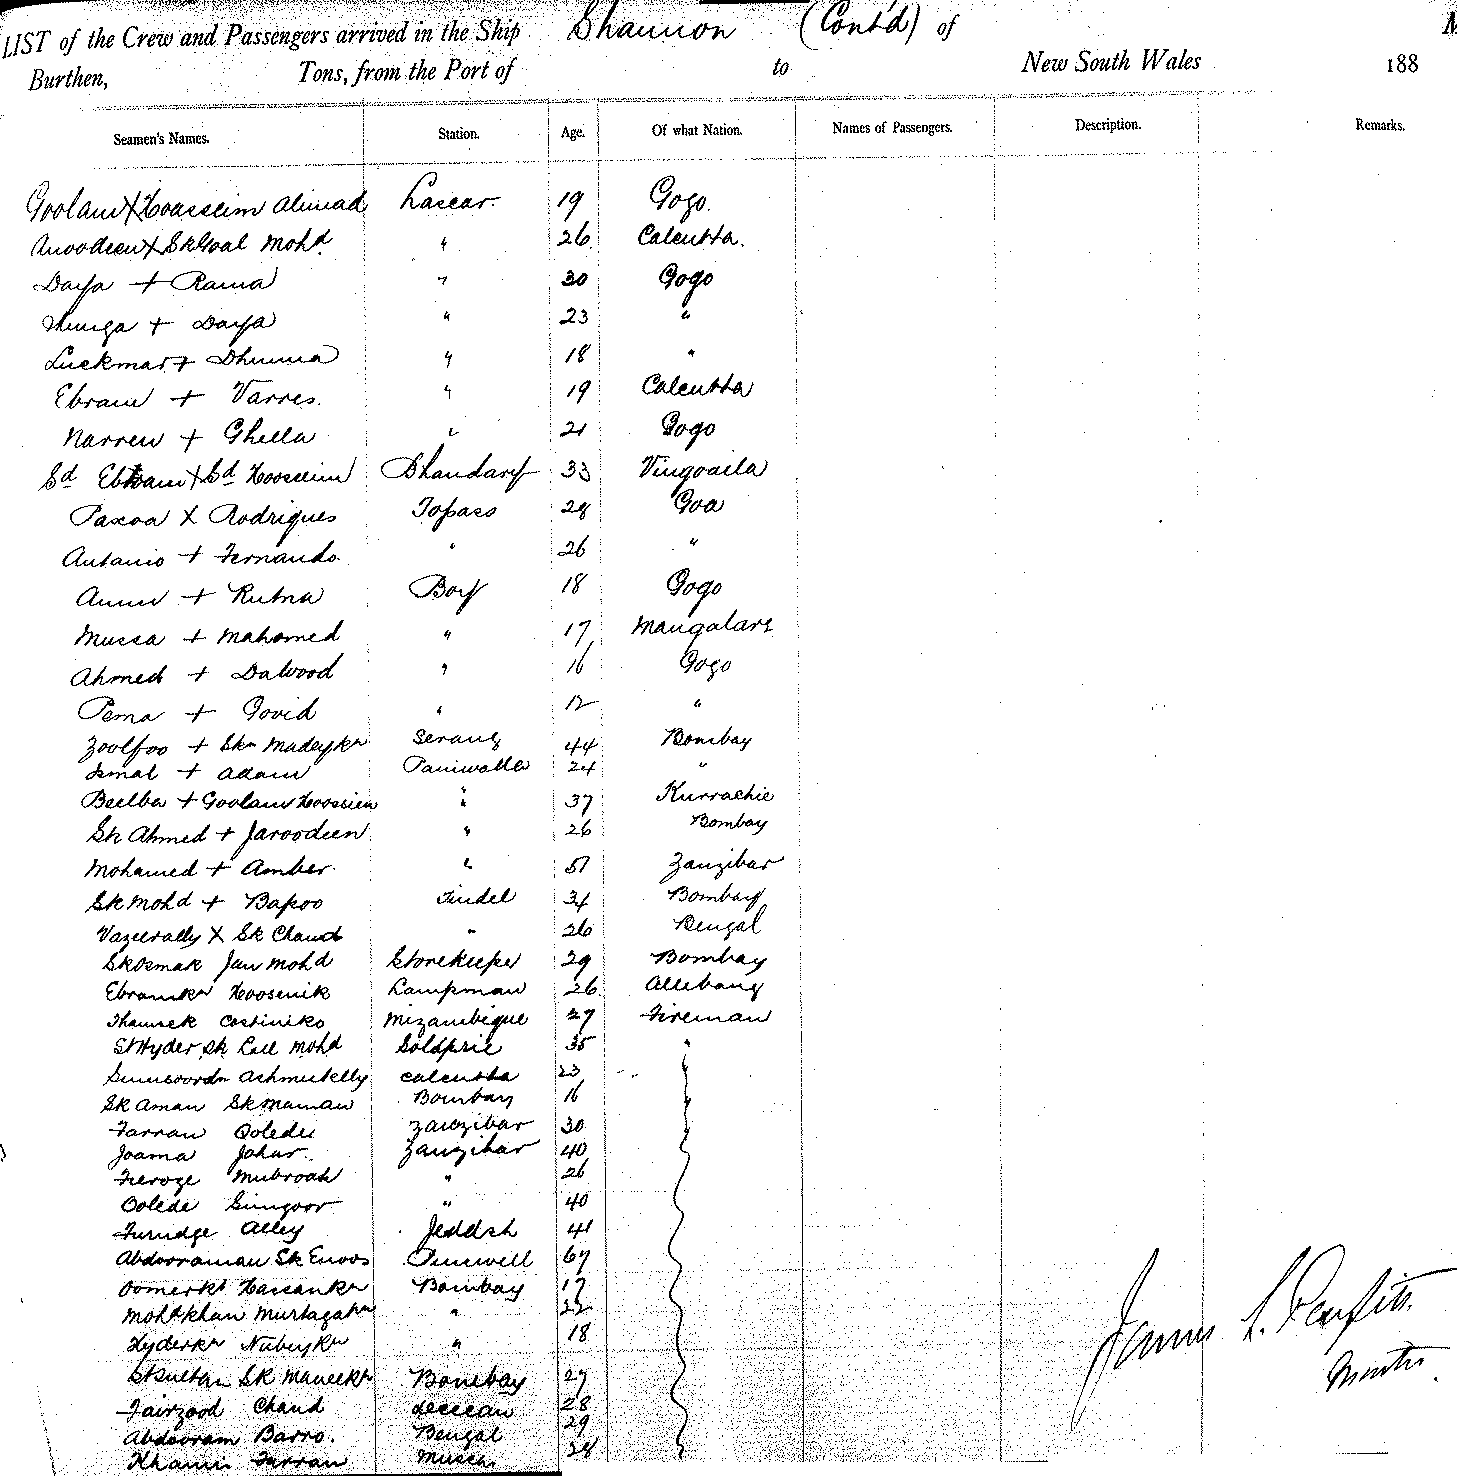 LIST of the Crew and Passengers arrived in the Ship Shannon (Cont'd) of
Burthen, Tons, from the Port of to New South Wales 188
Seamen's Names. Station. Age. Of what Nation. Names of Passengers. Description. Remarks.
Goolam X Hoosseim Ahmad Lascar. 19 Gogo.
Anoodeen X Sk Goal Mohd. " 26 Calcutta.
Daya + Rama " 30 Gogo
+ Daya " 23 "
Luckman + Dhunna " 18 "
Ebram + Varres. " 19 Calcutta
Narren + Ghella " 21 Gogo
Sd Ebram X Sd Hoosseim Bhandary 33 Vingoaila
Paxoa X Rodrigues Topass 28 Goa
Antanio + Fernando " 26 "
+ Rutna Boy 18 Gogo
Mussa + Mahomed " 17 Mangalare
Ahmed + Dawood " 16 Gogo
Pema + Govid " 12 "
Zoolfoo + Skn Madeykn Serang 44 Bombay
Ismal + Adam Paniwalla 24 "
Beelba + Goolam Hoossien " 37 Kurrachie
Sk Ahmed + Jaroodeen " 26 Bombay
Mohamed + Amber " 51 Zanzibar
Sk Mohd + Bapoo Tindel 34 Bombay
Vazeerally X Sk Chand " 26 Bengal
Sk Osmak Jan Mohd Storekeeper 29 Bombay
Ebramkn Hoosenik Lampman 26 Allebang
Thamsek Costiniko Mizambique 27 Fireman
St Hyder Sk Lall Mohd Goldprie 35 "
Achmutelly Calcutta 23
Sk Aman Sk Maman Bombay 16
Farran Ooledee Zanzibar 30
Joama Johur. Zanzibar 40
Feroze Mubroak " 26
Oolede Sungoor " 40
Furudge Alley Jeddah 41
Abdooraman Sk Enoos Punwell 67
Oomerkn Hassankn Bombay 17
Mohdkhan Murtazakn " 22
Hyderkn Nubeykn " 18
St Sultan Sk Maneekn Bombay 27
Fairzood Chand Deccan 28
Abdooram Barro. Bengal 29
Khamis Farran 28
James L. Penfitt
Master